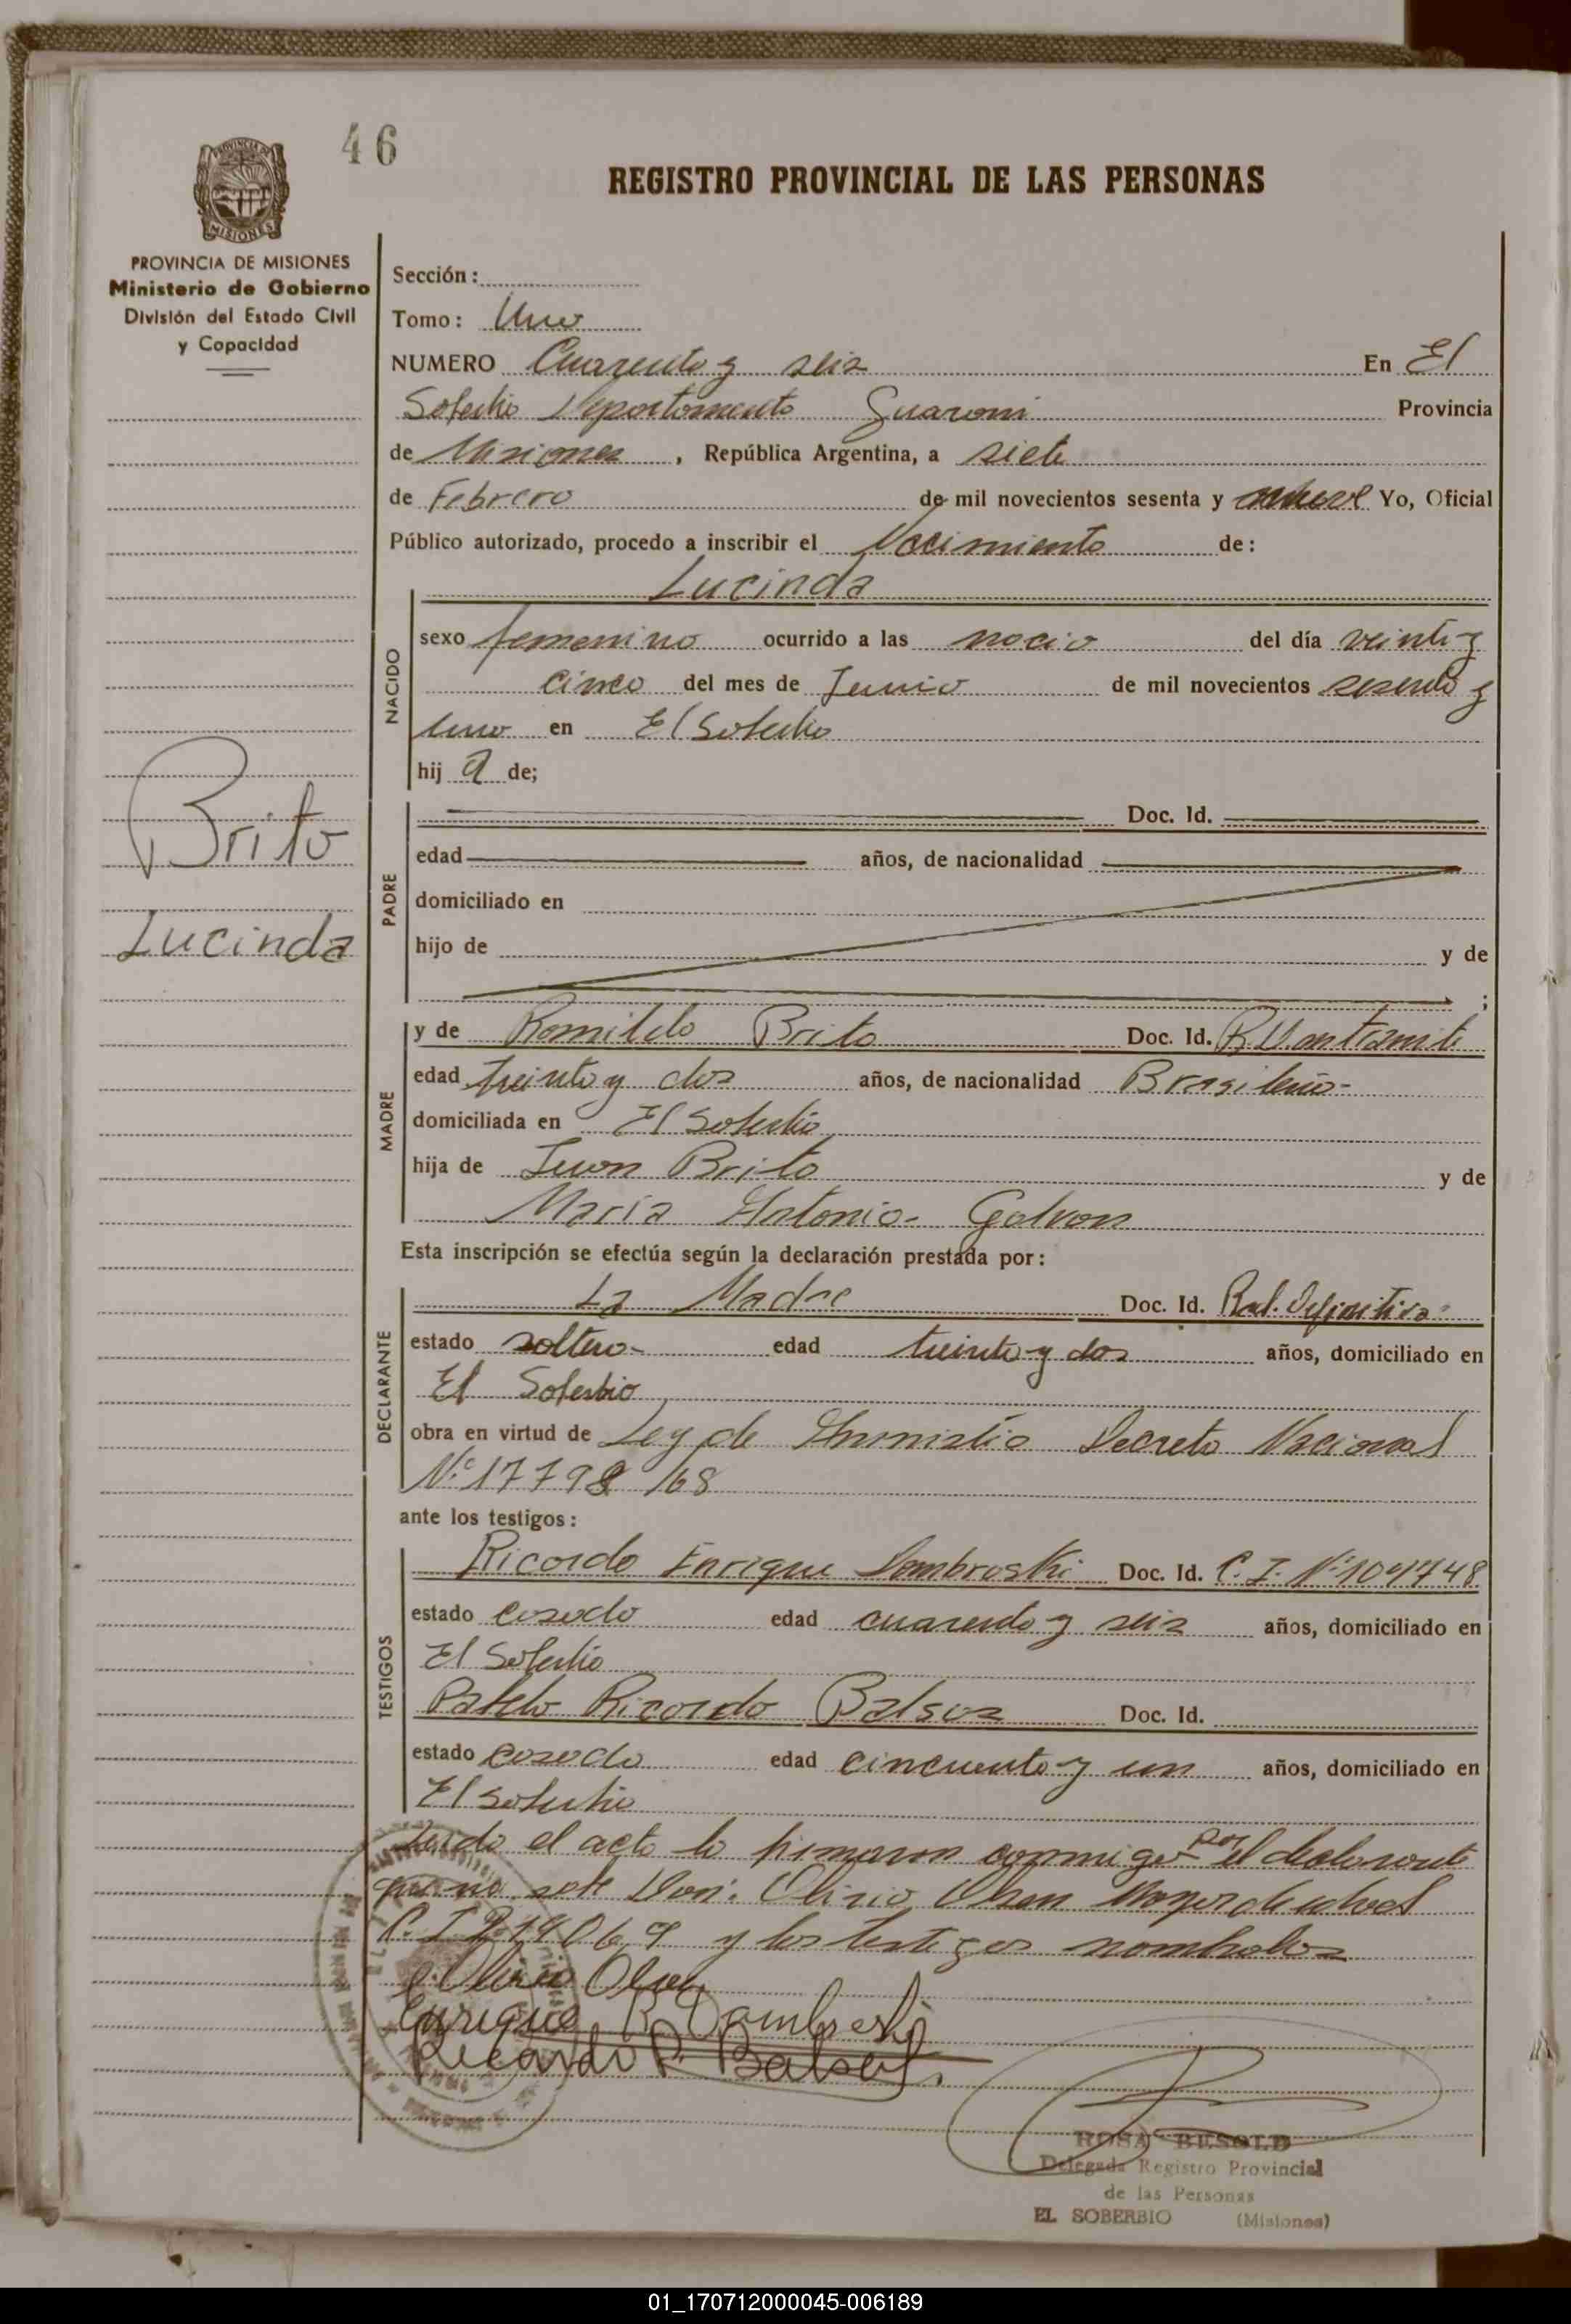 46
REGISTRO PROVINCIAL DE LAS PERSONAS
PROVINCIA DE MISIONES
MISIONES
PROVINCIA DE MISIONES
Ministerio de Gobierno
División del Estado Civil
y Capacidad
Brito
Lucinda
Sección:
Tomo: Uno
NUMERO Cuarenta y seis En El
Soberbio Departamento Guarani Provincia
de Misiones, República Argentina, a siete
de Febrero de mil novecientos sesenta y nueve Yo, Oficial
Público autorizado, procedo a inscribir el Nacimiento de:
Lucinda
NACIDO
sexo femenino ocurrido a las nacio del día veinti y
cinco del mes de Junio de mil novecientos sesenta y
uno en El Soberbio
hij a de;
PADRE
Doc. Id.
edad años, de nacionalidad
domiciliado en
hijo de y de
;
MADRE
y de Romilda Brito Doc. Id.
edad treinta y dos años, de nacionalidad Brasileña-
domiciliada en El Soberbio
hija de Juan Brito y de
Maria Antonia- Galvan
Esta inscripción se efectúa según la declaración prestada por:
DECLARANTE
La Madre Doc. Id. Rad. Definitiva
estado soltera- edad treinta y dos años, domiciliado en
El Soberbio
obra en virtud de Ley de Amnistia Decreto Nacional
Nº 17798/68
ante los testigos:
TESTIGOS
Ricardo Enrique Dombroski Doc. Id. C. I. Nº 104748
estado casado edad cuarenta y seis años, domiciliado en
El Soberbio
Pablo Ricardo Doc. Id.
estado casado edad cincuenta y un años, domiciliado en
El Soberbio
Leido el acta la firmaron conmigo por el declarante
que no sabe Don. Olirio Mayor de edad
C. I. y los testigos nombrados
Olirio
Enrique R Dombroski
Ricardo P.
ROSA BESOLD
Delegada Registro Provincial
de las Personas
EL SOBERBIO (Misiones)
01_170712000045-006189